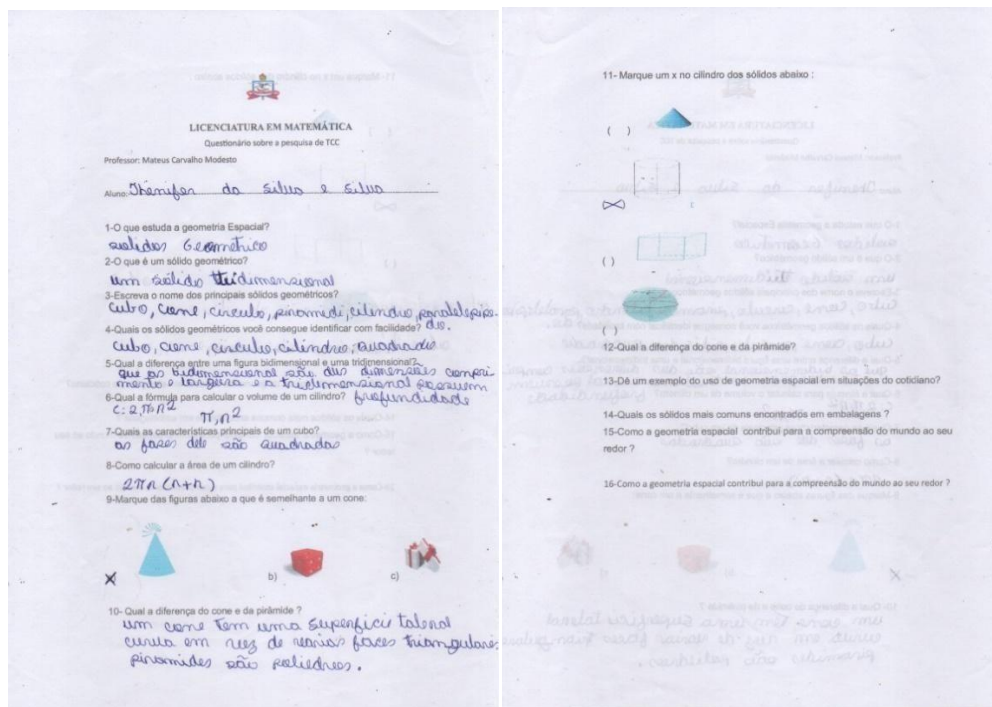 LICENCIATURA EM MATEMÁTICA
Questionário sobre a pesquisa de TCC
Professor: Mateus Carvalho Modesto
Aluno: Thenifer da Silva e Silva
1-O que estuda a geometria Espacial?
solidos Geométrico
2-O que é um sólido geométrico?
um sólido tridimensional
3-Escreva o nome dos principais sólidos geométricos?
cubo, cone, circulo, piramidi, cilindro, paralelepipe-
4-Quais os sólidos geométricos você consegue identificar com facilidade? do.
cubo, cone, circulo, cilindro, quadrado
5-Qual a diferença entre uma figura bidimensional e uma tridimensional?
que as bidimensional são dus dimensões compri
mento e largura e a tridimensional possuem
6-Qual a fórmula para calcular o volume de um cilindro? profundidade
C: 2.π.r²
π.r²
7-Quais as características principais de um cubo?
as faces dele são quadradas
8-Como calcular a área de um cilindro?
2πr (r+r)
9-Marque das figuras abaixo a que é semelhante a um cone:
X b) c)
10- Qual a diferença do cone e da pirâmide ?
um cone tem uma superficis talenal
curva em vez de varias faces triangulares.
piramides são poliedros.
11- Marque um x no cilindro dos sólidos abaixo :
( )
(X)
( )
( )
12-Qual a diferença do cone e da pirâmide?
13-Dê um exemplo do uso de geometria espacial em situações do cotidiano?
14-Quais os sólidos mais comuns encontrados em embalagens ?
15-Como a geometria espacial contribui para a compreensão do mundo ao seu
redor ?
16-Como a geometria espacial contribui para a compreensão do mundo ao seu redor ?